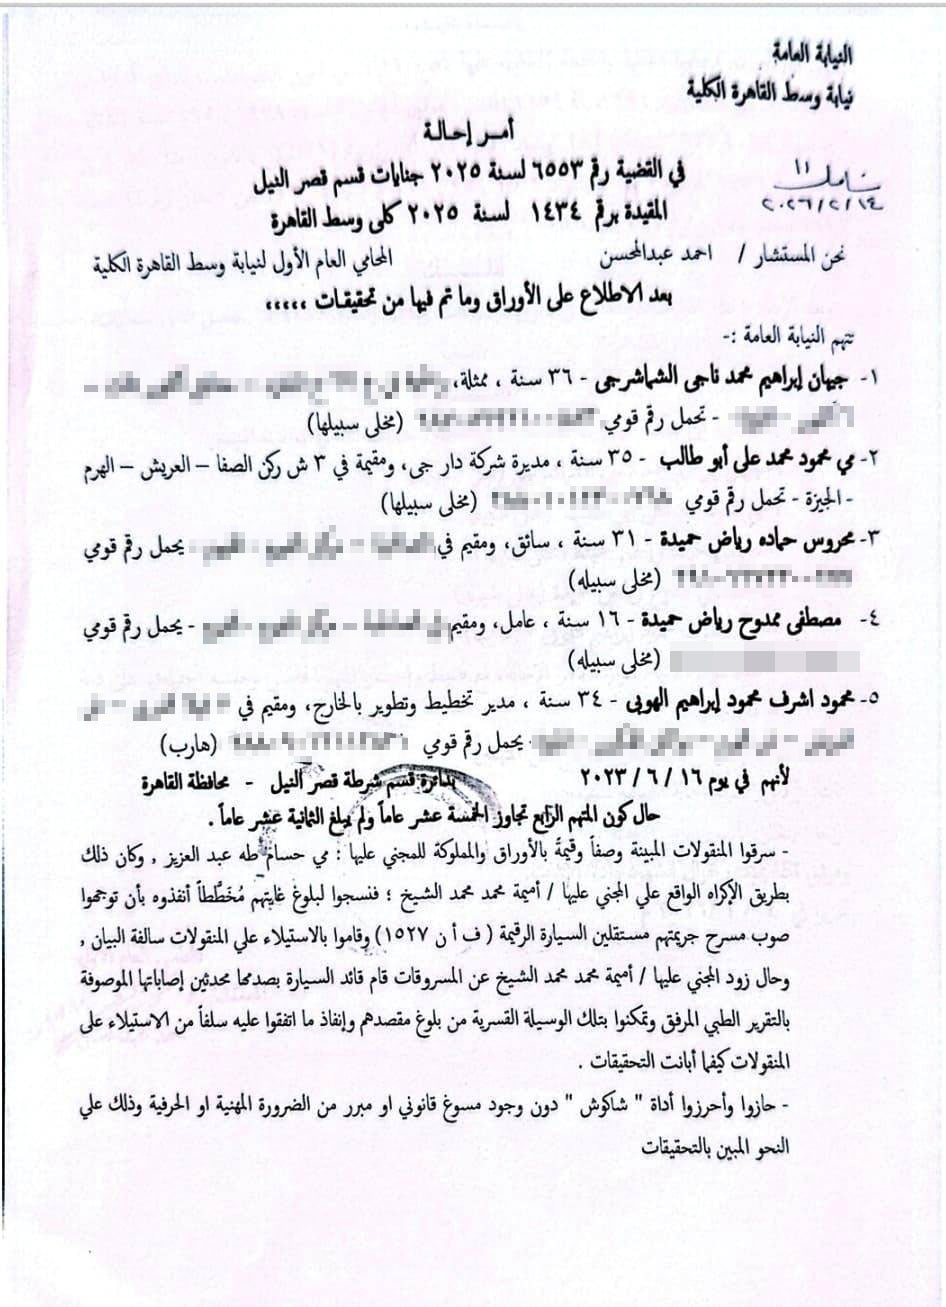 النيابة العامة
نيابة وسط القاهرة الكلية
أمـر إحـالـة
في القضية رقم ٦٥٥٣ لسنة ٢٠٢٥ جنايات قسم قصر النيل
١١
٢٠٢٦/٢/١٤
المقيدة برقم ١٤٣٤ لسنة ٢٠٢٥ كلى وسط القاهرة
نحن المستشار / احمد عبدالمحسن المحامي العام الأول لنيابة وسط القاهرة الكلية
بعد الاطلاع على الأوراق وما تم فيها من تحقيقات ،،،،،
تتهم النيابة العامة :-
١- جيهان إبراهيم محمد ناجى الشماشرجى - ٣٦ سنة ، ممثلة،
- تحمل رقم قومي (مخلى سبيلها)
٢- مي محمود محمد على أبو طالب - ٣٥ سنة ، مديرة شركة دار جى، ومقيمة في ٣ ش ركن الصفا – العريش – الهرم
- الجيزة - تحمل رقم قومي (مخلى سبيلها)
٣- محروس حماده رياض حميدة - ٣١ سنة ، سائق، ومقيم في - يحمل رقم قومي
(مخلى سبيله)
٤- مصطفى ممدوح رياض حميدة - ١٦ سنة ، عامل، ومقيم - يحمل رقم قومي
(مخلى سبيله)
٥- محمود اشرف محمود إبراهيم الهوبى - ٣٤ سنة ، مدير تخطيط وتطوير بالخارج، ومقيم في
يحمل رقم قومي (هارب)
لأنهم في يوم ١٦ / ٦ / ٢٠٢٣ بدائرة قسم شرطة قصر النيل - محافظة القاهرة
حال كون المتهم الرابع تجاوز الخمسة عشر عاماً ولم يبلغ الثمانية عشر عاماً .
- سرقوا المنقولات المبينة وصفاً وقيمةً بالأوراق والمملوكة للمجني عليها : مي حسام طه عبد العزيز , وكان ذلك
بطريق الإكراه الواقع علي المجني عليها / أميمة محمد محمد الشيخ ؛ فنسجوا لبلوغ غايتهم مُخَطَّطاً أنفذوه بأن توجهوا
صوب مسرح جريمتهم مستقلين السيارة الرقيمة ( ف أ ن ١٥٢٧) وقاموا بالاستيلاء علي المنقولات سالفة البيان ,
وحال زود المجني عليها / أميمة محمد محمد الشيخ عن المسروقات قام قائد السيارة بصدمها محدثين إصاباتها الموصوفة
بالتقرير الطبي المرفق وتمكنوا بتلك الوسيلة القسرية من بلوغ مقصدهم وإنفاذ ما اتفقوا عليه سلفاً من الاستيلاء على
المنقولات كيفما أبانت التحقيقات .
- حازوا وأحرزوا أداة " شاكوش " دون وجود مسوغ قانوني او مبرر من الضرورة المهنية او الحرفية وذلك علي
النحو المبين بالتحقيقات